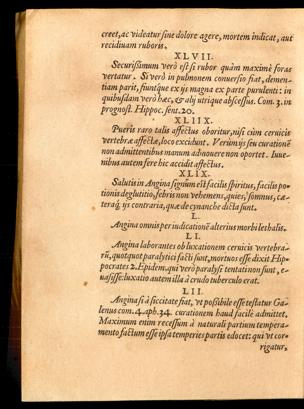 creet, ac videatur sine dolore agere, mortem indicat, aut
recidiuam ruboris.
XLVII.
Securißimum verò est si rubor quàm maximè foras
vertatur. Si verò in pulmonem conuersio fiat, demen-
tiam parit, fiuntque ex ijs magna ex parte purulenti: in
quibusdam verò hæc, & alij utrique abscessus. Com. 3. in
prognost. Hippoc. sent. 20.
XLIIX.
Pueris raro talis affectus oboritur, nisi cùm ceruicis
vertebræ affectæ, loco excidunt. Verùm ijs seu curationē
non admittentibus manum admouere non oportet. Iuue-
nibus autem fere hic accidit affectus.
XLIX.
Salutis in Angina signum est facilis spiritus, facilis po-
tionis deglutitio, febris non vehemens, quies, somnus, cæ-
teraq́; ijs contraria, quæ de cynanche dicta sunt.
L.
Angina omnis per indicationē alterius morbi lethalis.
LI.
Angina laborantes ob luxationem ceruicis vertebra-
rū, quotquot paralytici facti sunt, mortuos esse dixit Hip-
pocrates 2. Epidem. qui verò paralysi tentati non sunt, e-
uasisse: luxatio autem illa à crudo tuberculo erat.
LII.
Angina si à siccitate fiat, vt poßibile esse testatur Ga-
lenus com. 4. aph. 34. curationem haud facilè admittet.
Maximum enim recessum à naturali partium tempera-
mento factum esse ipsa temperies partis edocet: qui vt cor-
rigatur,